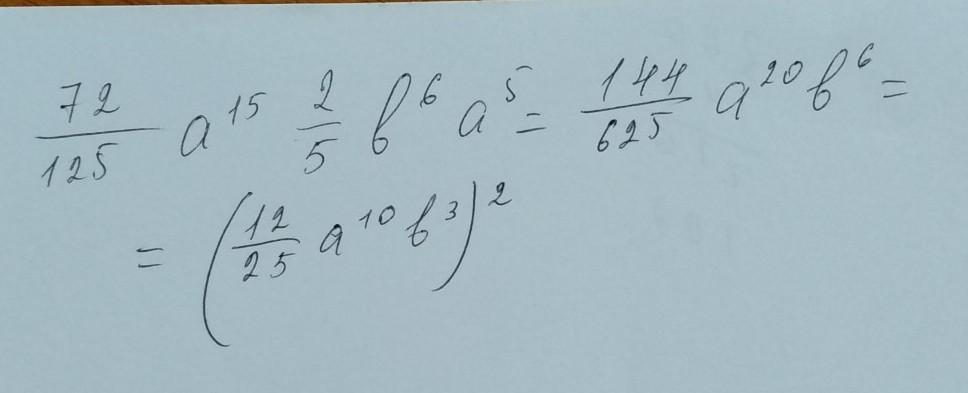 72/125 a^15 2/5 b^6 a^5 = 144/625 a^20 b^6 =
= (12/25 a^10 b^3)^2